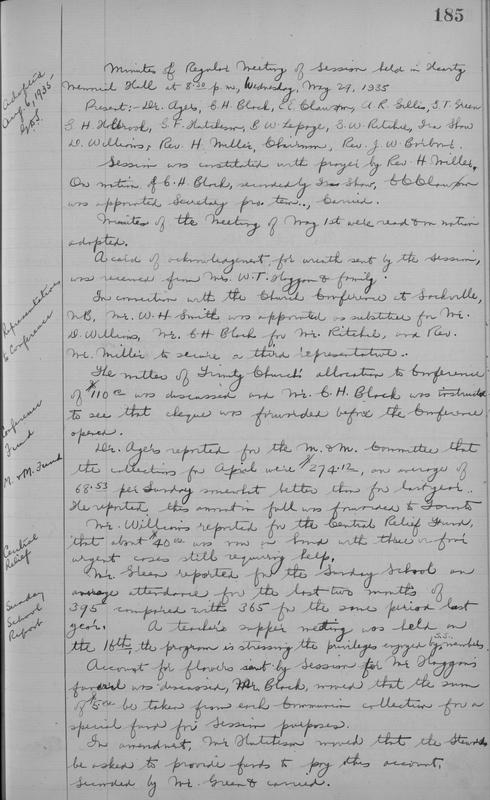 185
Minutes of Regular Meeting of Session held in Hearty
Memorial Hall at 8:30 p.m., Wednesday, May 29, 1935
Adopted
Aug. 6, 1935
Present:- Dr. Agers, C.H. Black, C.C. Clawson, A.R. Gillis, S.T. Green
G.H. Holbrook, G.F. Hutcheson, B.W. Lepage, S.W. Ritchie, Ira Show
D. Williams, Rev. H. Miller, Chairman, Rev. J.W.
Session was constituted with prayer by Rev. H. Miller.
On motion of C.H. Black, seconded by Ira Show, C C Clawson
was appointed Secretary pro. tem., Carried.
Minutes of the Meeting of May 1st were read & on motion
adopted.
A card of acknowledgement for wreath sent by the Session,
was received from Mrs. W.T. Hoggan & family.
Representatives
to Conference
In connection with the Church Conference at Sackville,
N.B., Mr. W.H. Smith was appointed as substitute for Mr.
D. Williams, Mr. C H Black for Mr. Ritchie, and Rev.
Mr. Miller to secure a third representative.
Conference
Fund
The matter of Trinity Church's allocation to Conference
of $110.00 was discussed and Mr. C.H. Black was instructed
to see that cheque was forwarded before the Conference
opened.
M. & M. Fund
Dr. Agers reported for the M. & M. Committee that
the collections for April were $274.12, an average of
68.53 per Sunday somewhat better than for last year.
He reported, this amount in full was forwarded to Toronto
Central
Relief
Mr. Williams reported for the Central Relief Fund,
that about $40.00 was now on hand with three or four
urgent cases still requiring help.
Sunday
School
Report
Mr. Green reported for the Sunday School an
average attendance for the last two months of
395 compared with 365 for the same period last
year. A teacher's supper meeting was held on
the 16th, the program is stressing the privileges enjoyed by S.S. members.
Account for flowers sent by Session for Mr Hoggan's
funeral was discussed, Mr. Black, moved that the sum
of $5.00 be taken from each Communion collection for a
special fund for Session purposes.
In amendment, Mr Hutcheson moved that the Stewards
be asked to provide funds to pay this account,
Seconded by Mr. Green & carried.